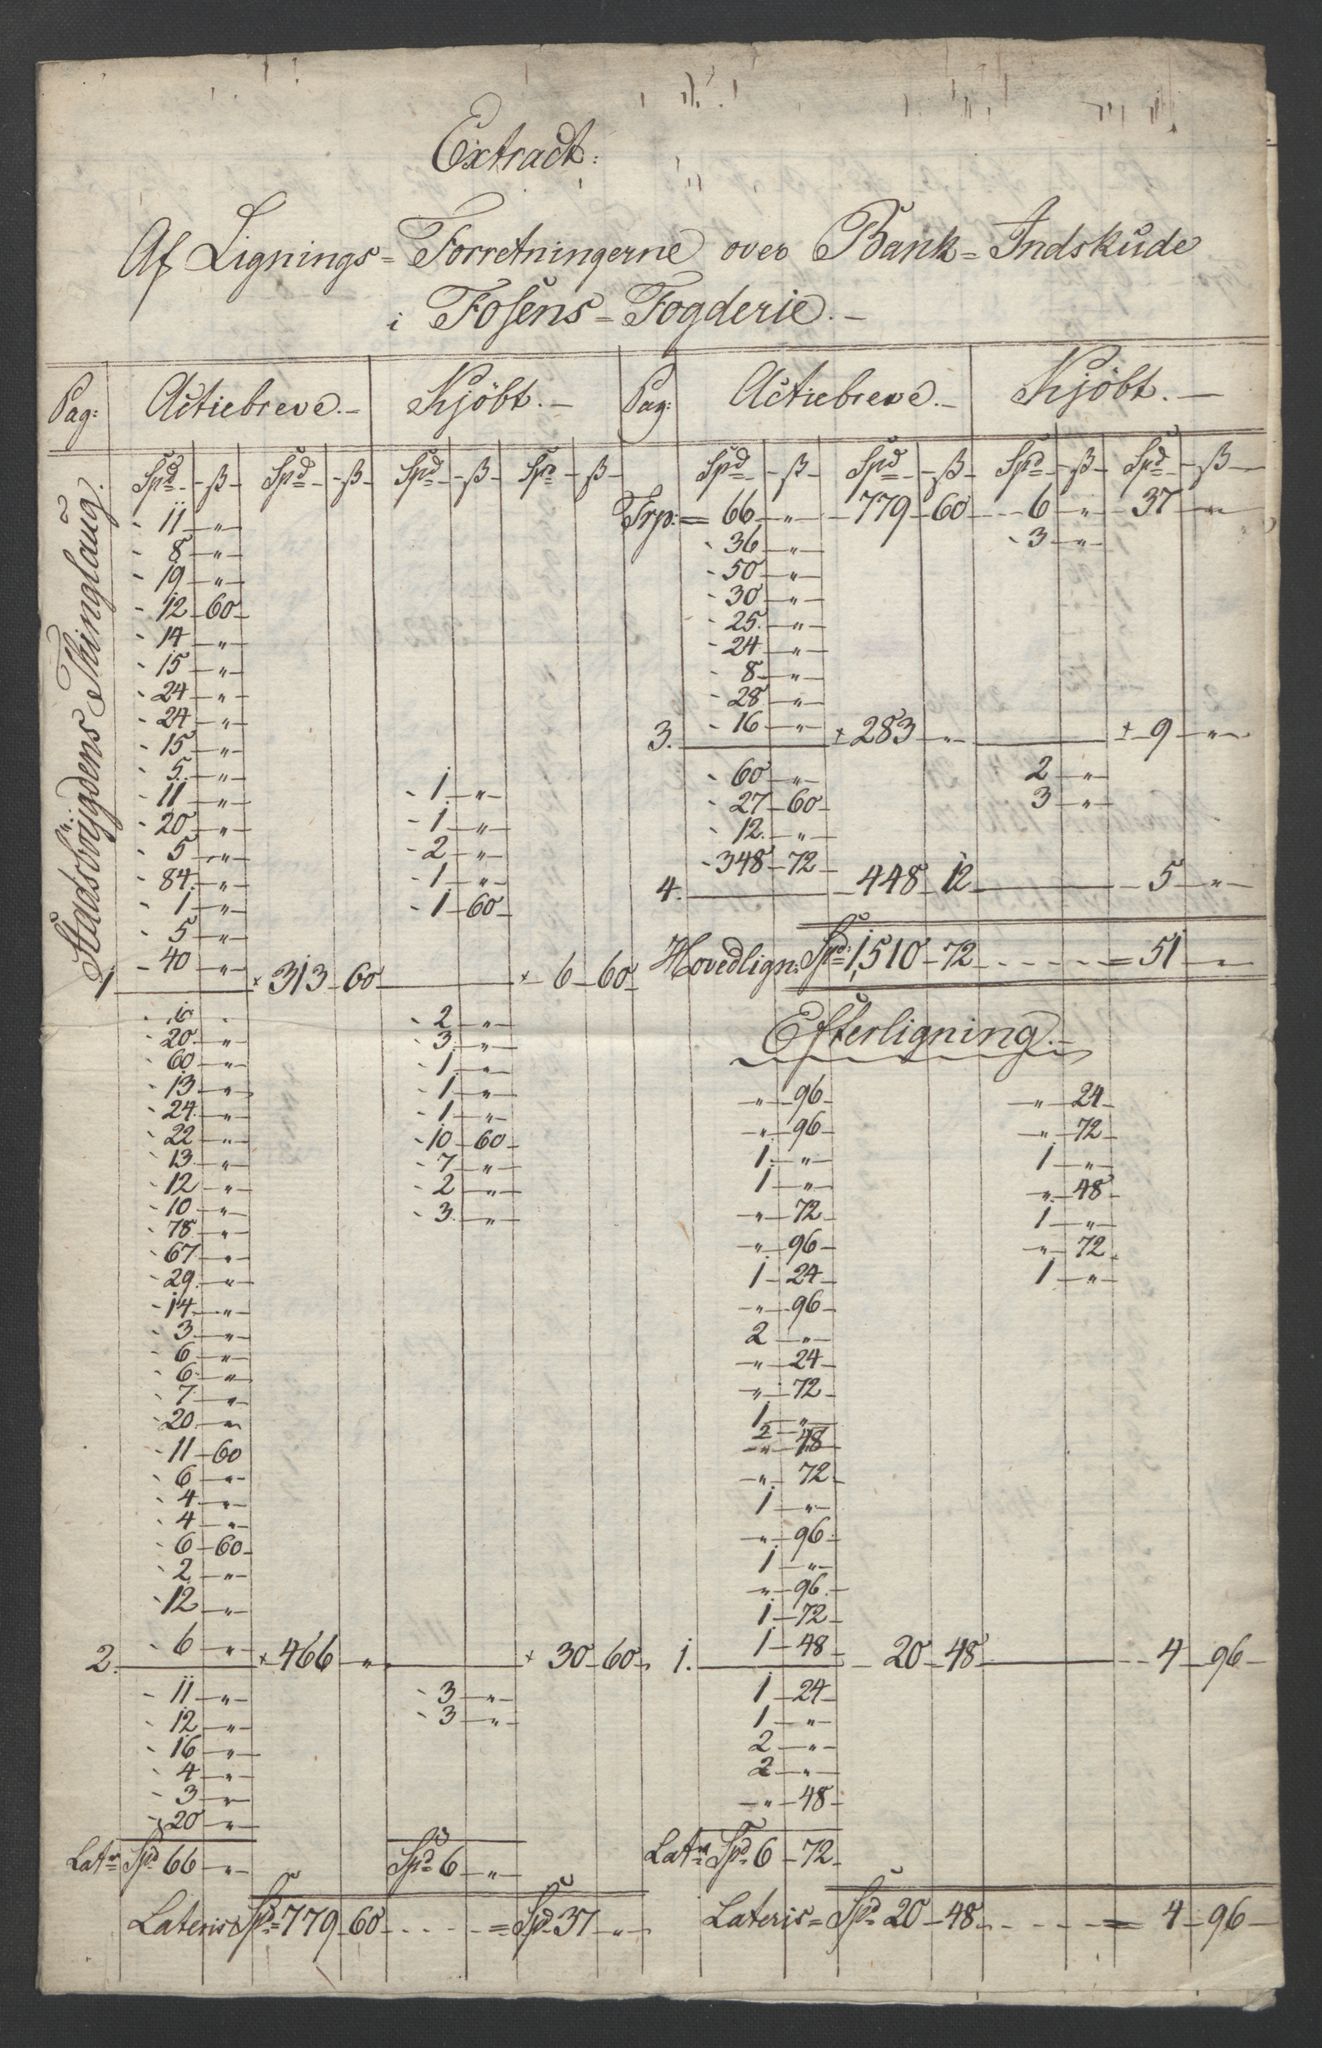 Extract:
Af Lignings-Forretningerne over Bank-Indskude
i Fosens-Fogderie.
Pag: Actiebreve. Kjöbt. Pag: Actiebreve. Kjöbt.
Spd ß Spd ß Spd ß Spd ß Spd ß Spd ß Spd ß Spd ß
Stadsbÿgdens Thinglaug.
11 "
8 "
19 "
12 60
14 "
15 "
24 "
24 "
15 "
5 "
11 " 1 "
20 " 1 "
5 " 2 "
84 " 1 "
1 " 1 60
5 "
40 "
1 313 60 6 60
6 2 "
20 " 3 "
60 " 1 "
13 " 1 "
24 " 1 "
22 " 10 60
13 " 7 "
12 " 2 "
10 " 3 "
78 "
67 "
29 "
14 "
3 "
6 "
6 "
7 "
20 "
11 60
6 "
4 "
4 "
6 60
2 "
12 "
6 "
2. 466 " 30 60
11 " 3 "
12 " 3 "
16 "
4 "
3 "
20 "
Latr Spd 66 " Spd 6 "
Lateris Spd 779 60 = Spd 37 "
Trp: = 66 " 779 60 6 " 37 "
36 " 3 "
50 "
30 "
25 "
24 "
8 "
28 "
16 "
3. 283 " 9 "
60 " 2 "
27 60 3 "
12 "
348 72
4. 448 12 5 "
Hovedlign: Spd: 1,510 72 = 51 "
Efterligning.
" 96 " 24
" 96 " 72
1 " 1 "
1 " " 48
" 72 1 "
" 96 " 72
1 24 1 "
" 96
2 "
" 24
" 72
1 "
" 48
" 72
1 "
" 96
1 "
" 96
1 72
1 48
1. 20 48 4 96
1 24
1 "
2 "
2 "
" 48
Latr Spd 6 72
Lateris = Spd 20 48 = 4 96